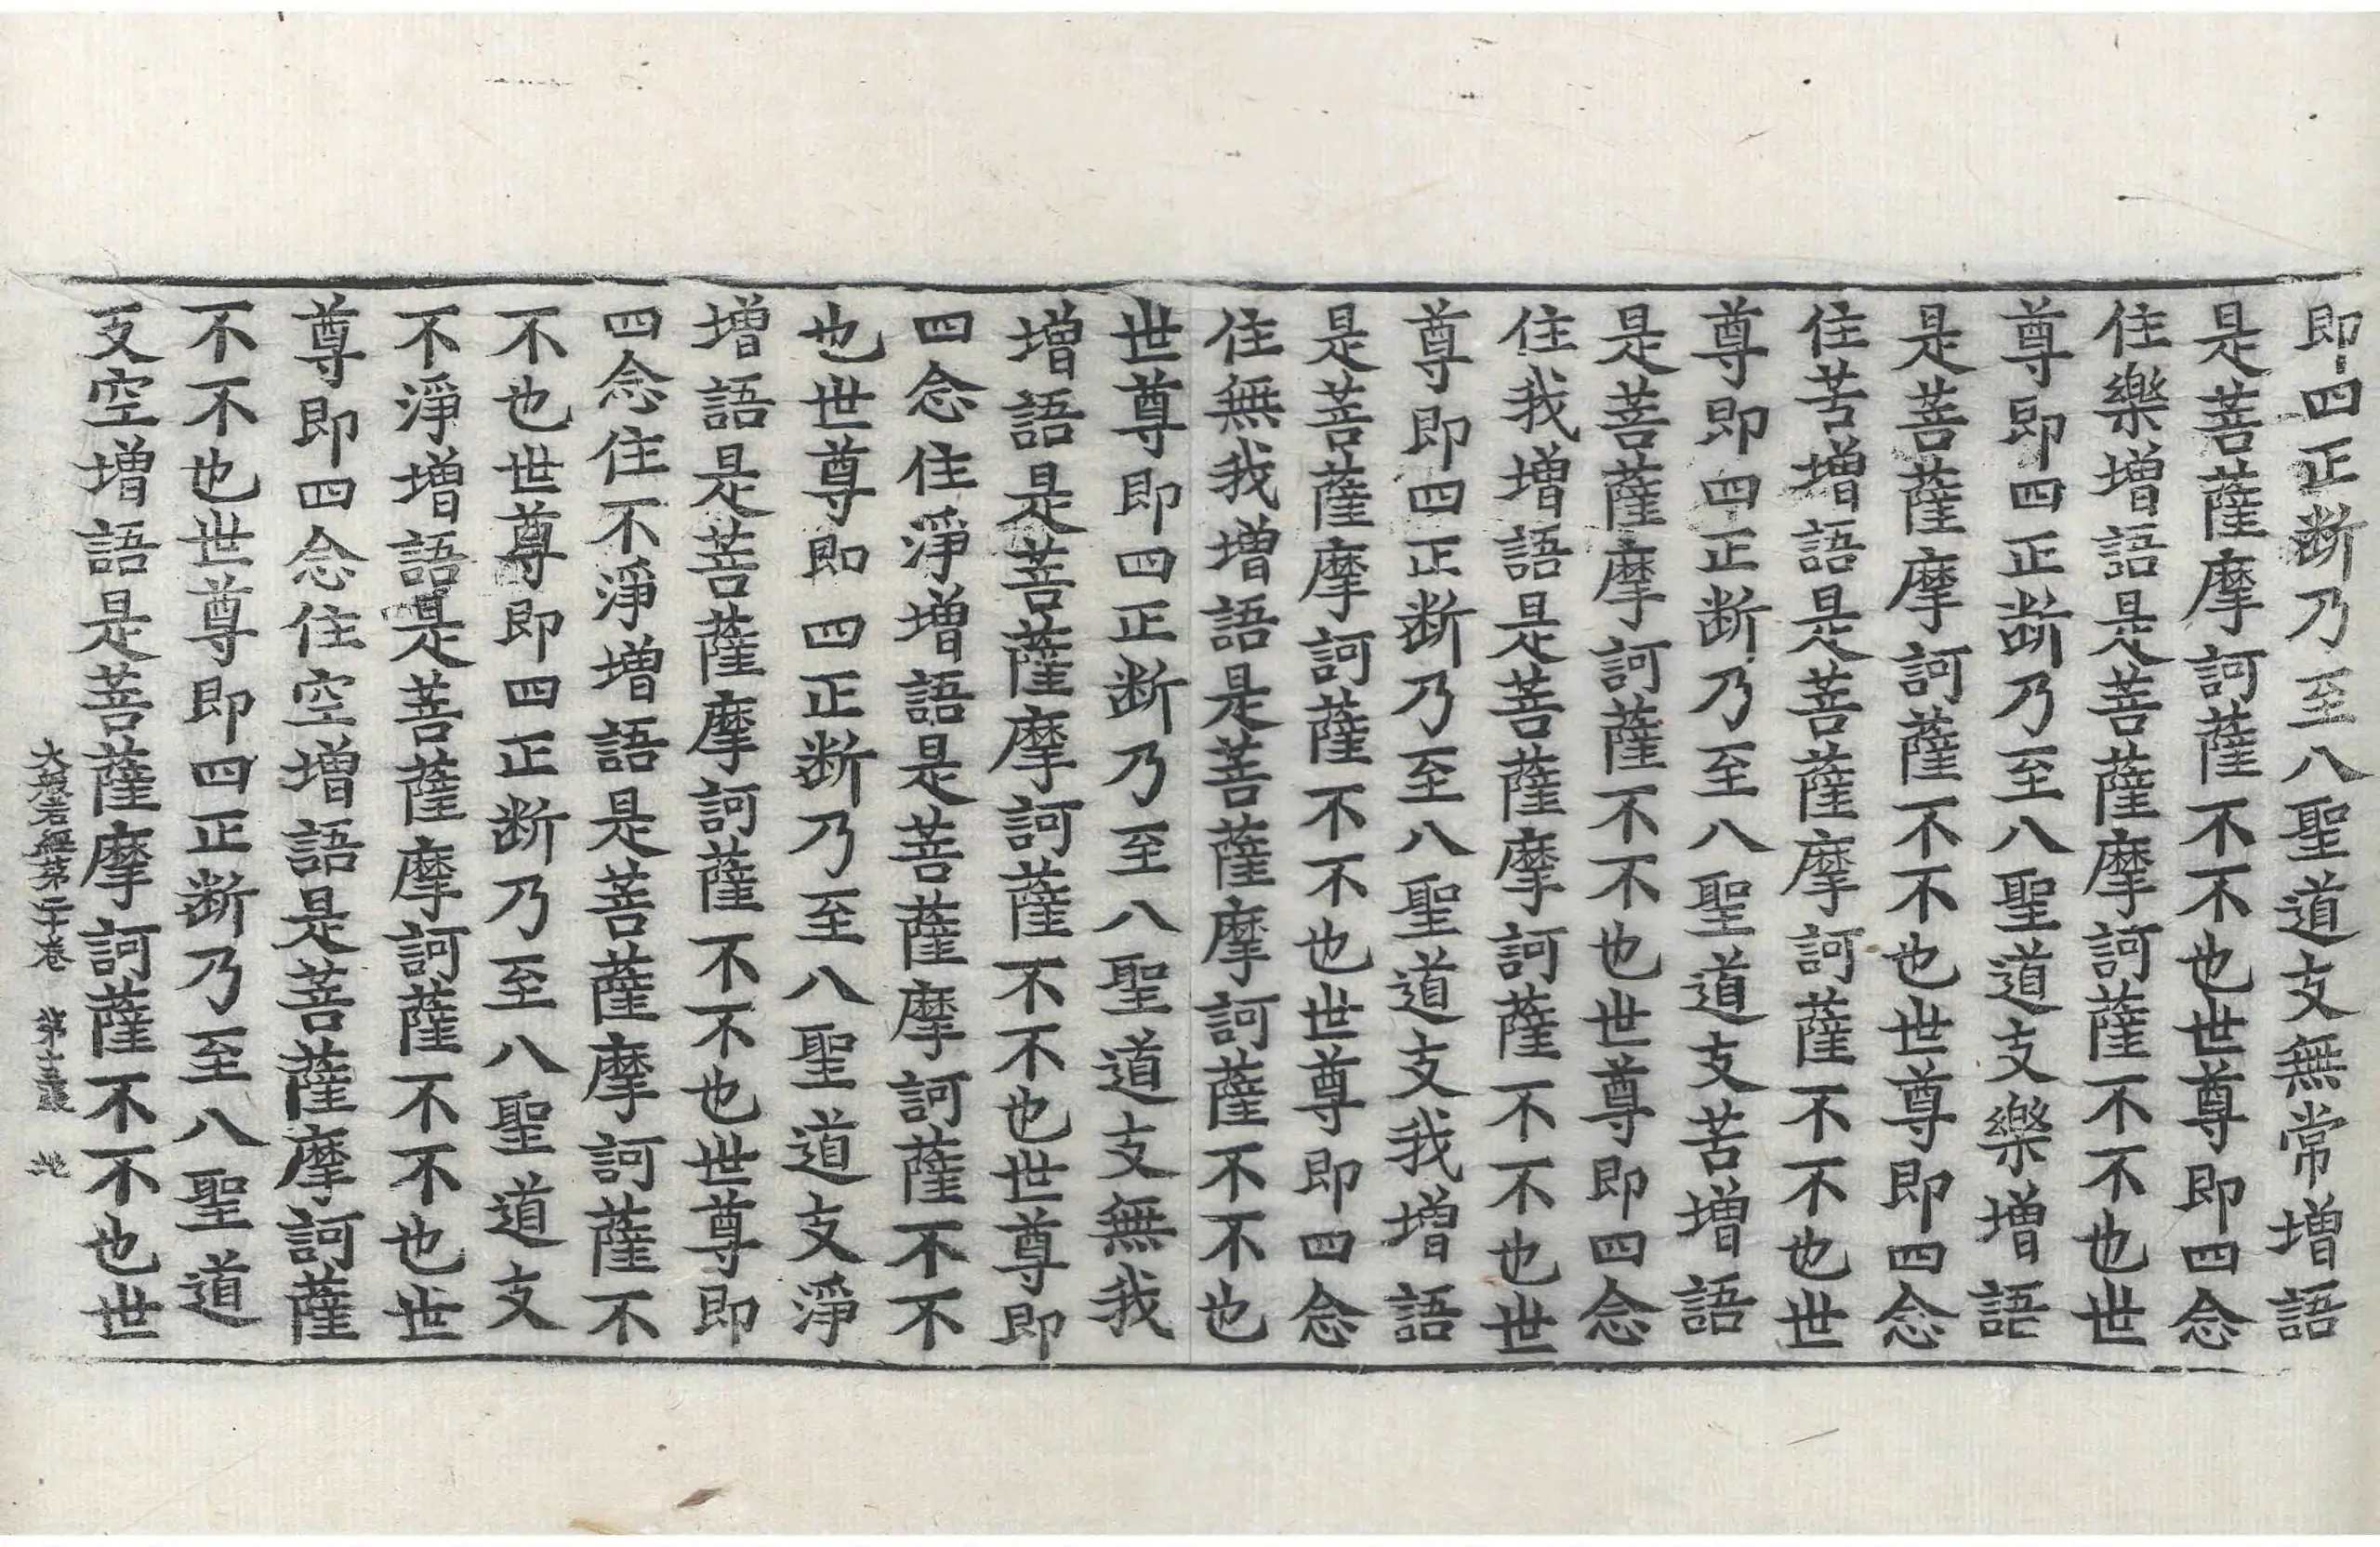 即四正断乃至八聖道支無常增語
是菩薩摩訶薩不不也世尊即四念
住樂增語是菩薩摩訶薩不不也世
尊即四正断乃至八聖道支樂增語
是菩薩摩訶薩不不也世尊即四念
住苦增語是菩薩摩訶薩不不也世
尊即四正断乃至八聖道支苦增語
是菩薩摩訶薩不不也世尊即四念
住我增語是菩薩摩訶薩不不也世
尊即四正断乃至八聖道支我增語
是菩薩摩訶薩不不也世尊即四念
住無我增語是菩薩摩訶薩不不也
世尊即四正断乃至八聖道支無我
增語是菩薩摩訶薩不不也世尊即
四念住淨增語是菩薩摩訶薩不不
也世尊即四正断乃至八聖道支淨
增語是菩薩摩訶薩不不也世尊即
四念住不淨增語是菩薩摩訶薩不
不也世尊即四正断乃至八聖道支
不淨增語是菩薩摩訶薩不不也世
尊即四念住空增語是菩薩摩訶薩
不不也世尊即四正断乃至八聖道
支空增語是菩薩摩訶薩不不也世
大般若經第二十卷 第